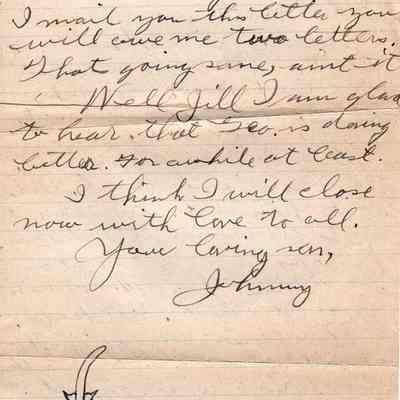 I mail you this letter you
will owe me two letters.
That going some, aint it
Well Jill I am glad
to hear that Geo. is doing
better. For awhile at least.
I think I will close
now with love to all.
Your loving son,
Johnny